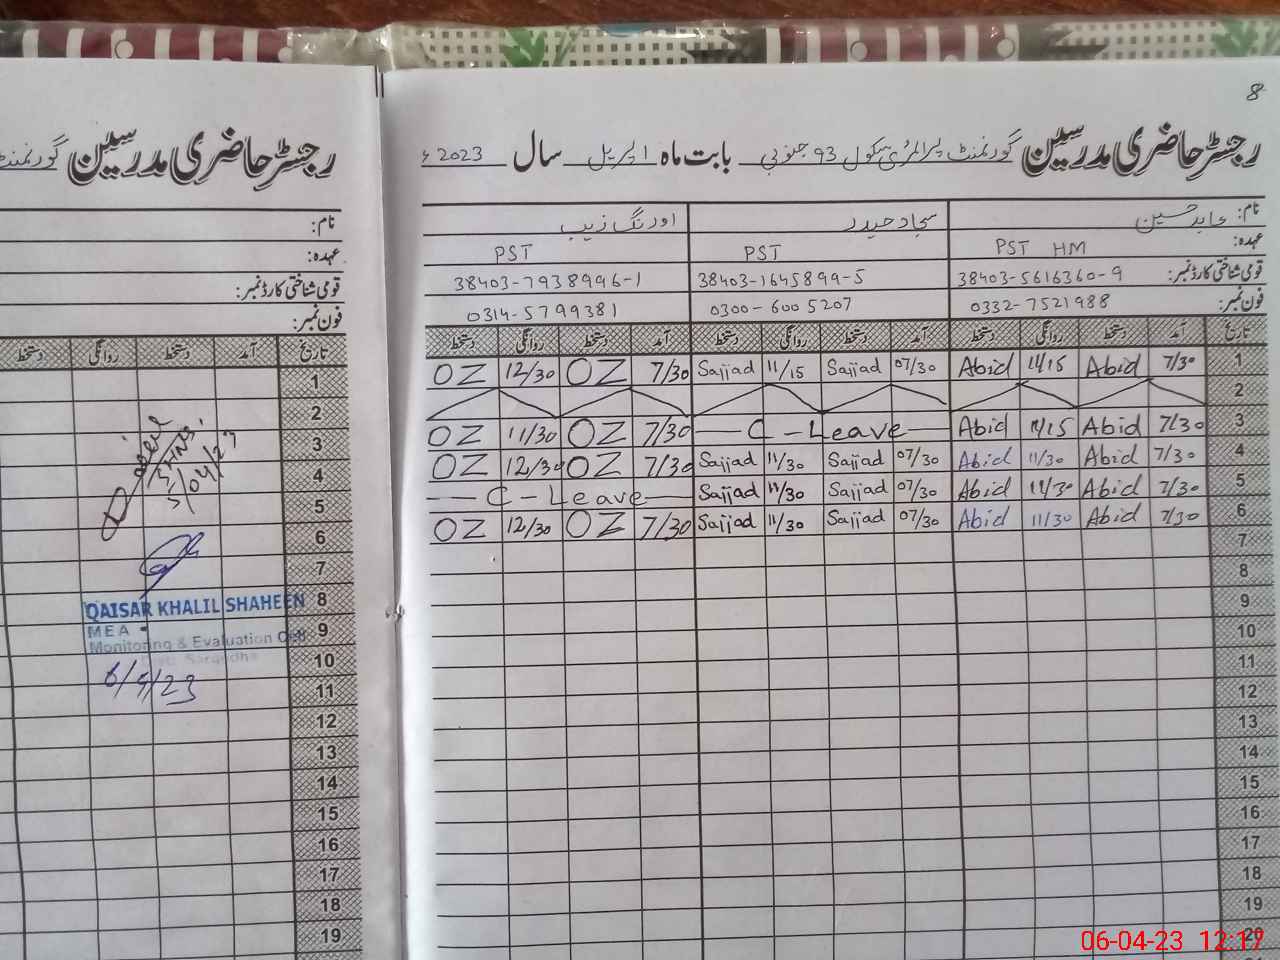 8
رجسٹر حاضری مدرسین گورنمنٹ پرائمری سکول 93 جنوبی بابت ماہ اپریل سال 2023ء
نام: عابد حسین سجاد حیدر اورنگ زیب
عہدہ: PST HM PST PST
قومی شناختی کارڈ نمبر: 38403-5616360-9 38403-1645899-5 38403-7938996-1
فون نمبر: 0332-7521988 0300-6005207 0314-5799381
تاریخ آمد دستخط روانگی دستخط آمد دستخط روانگی دستخط آمد دستخط روانگی دستخط
1 7/30 Abid 11/15 Abid 07/30 Sajjad 11/15 Sajjad 7/30 OZ 12/30 OZ
2
3 7/30 Abid 11/15 Abid C-Leave 7/30 OZ 11/30 OZ
4 7/30 Abid 11/30 Abid 07/30 Sajjad 11/30 Sajjad 7/30 OZ 12/30 OZ
5 7/30 Abid 11/30 Abid 07/30 Sajjad 11/30 Sajjad C-Leave
6 7/30 Abid 11/30 Abid 07/30 Sajjad 11/30 Sajjad 7/30 OZ 12/30 OZ
7
8
9
10
11
12
13
14
15
16
17
18
19
20
رجسٹر حاضری مدرسین گورنمنٹ
نام:
عہدہ:
قومی شناختی کارڈ نمبر:
فون نمبر:
تاریخ آمد دستخط روانگی دستخط
1
2
3
4
5
6
7
8
9
10
11
12
13
14
15
16
17
18
19
5/04/23
QAISAR KHALIL SHAHEEN
MEA
Monitoring & Evaluation Cell
Distt: Sargodha
6/4/23
06-04-23 12:17